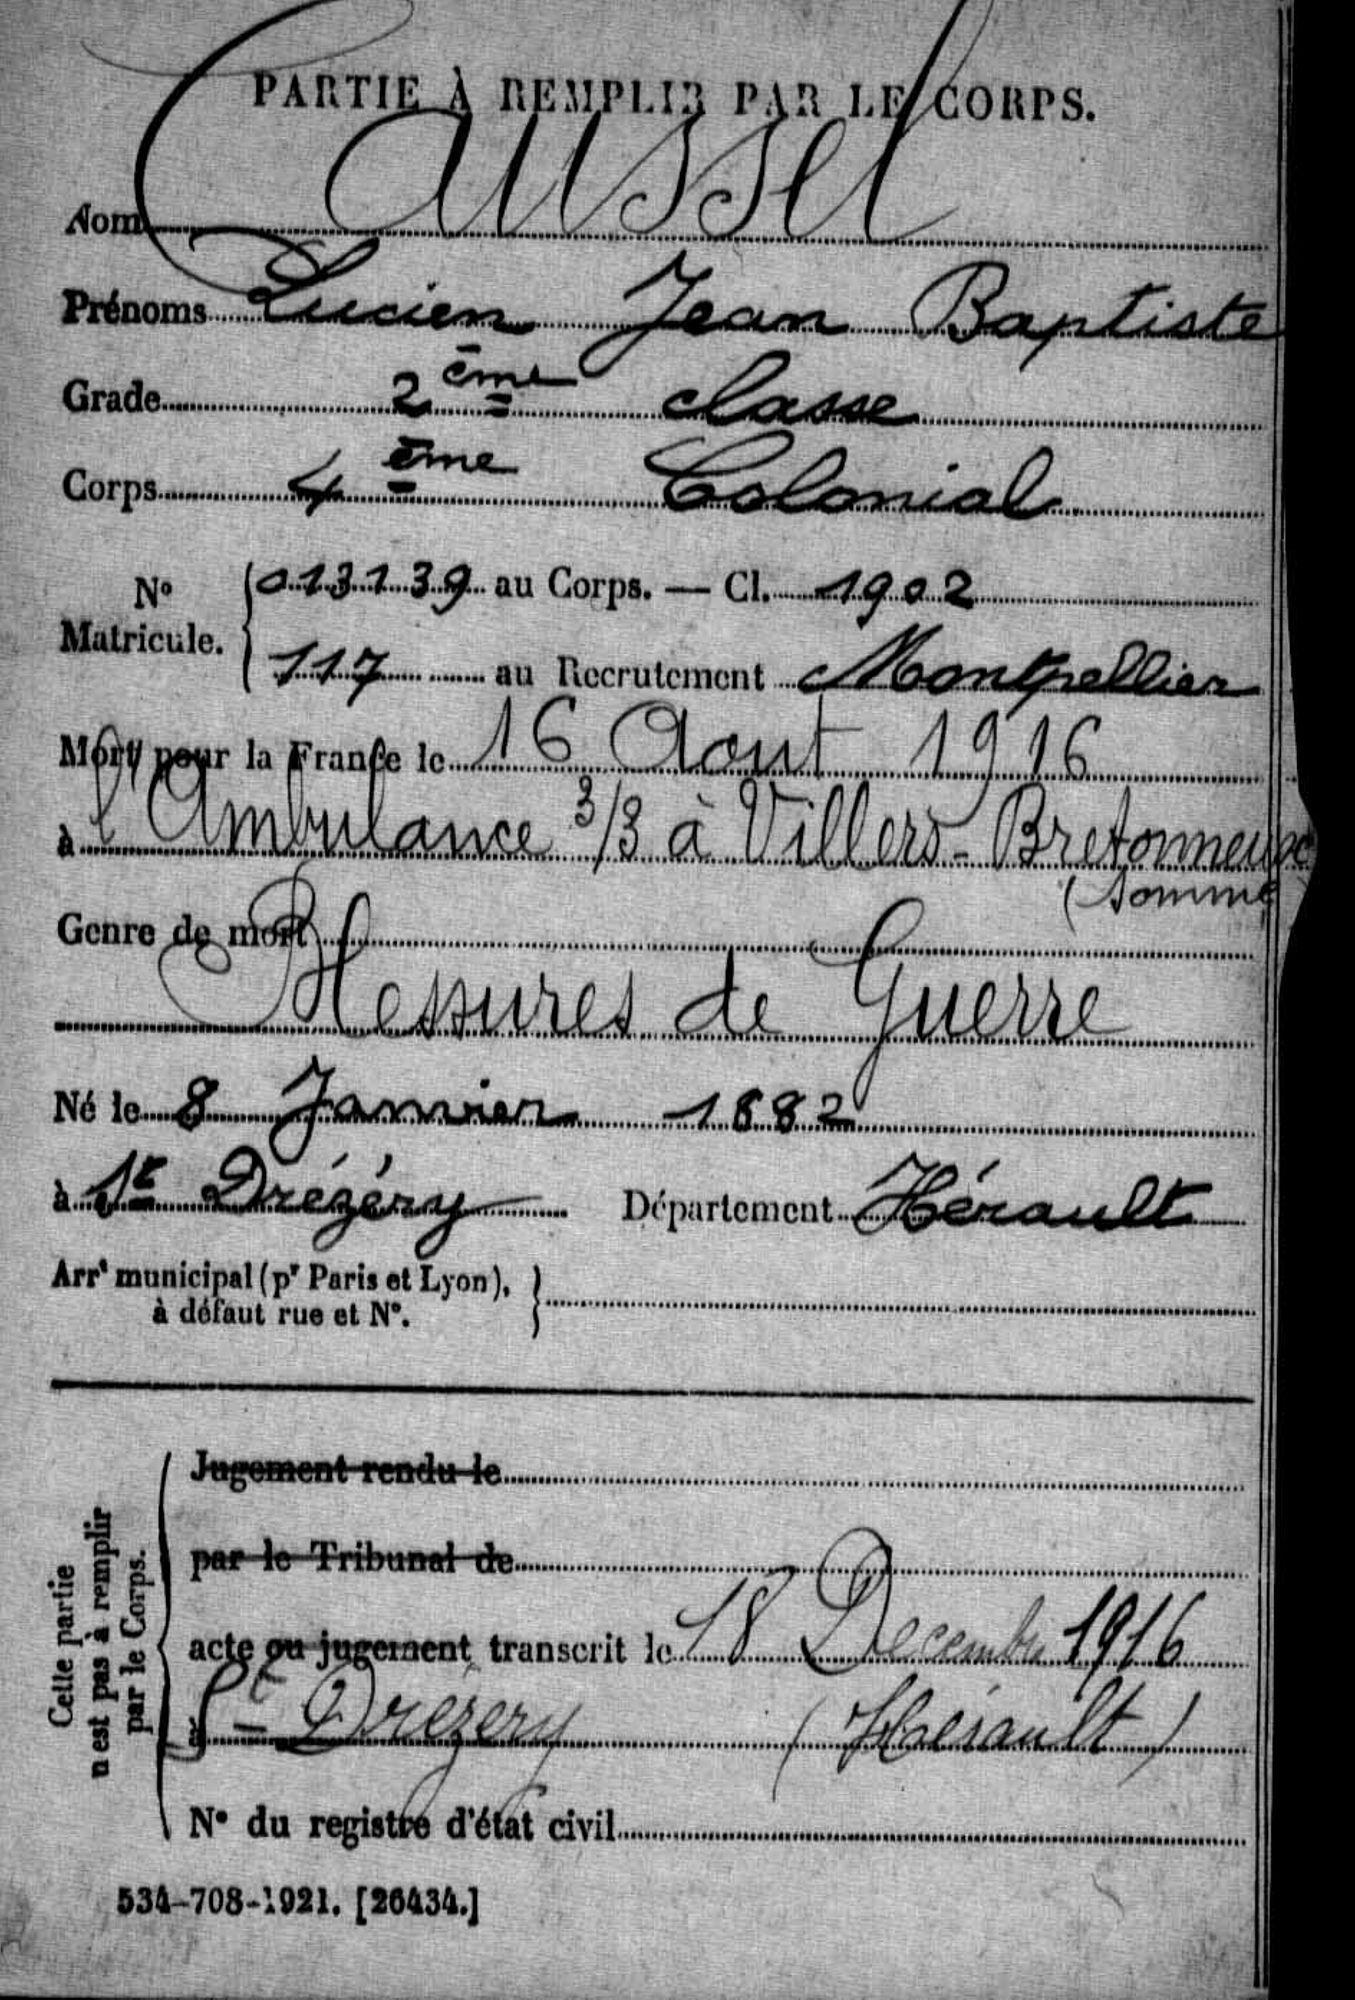 PARTIE À REMPLIR PAR LE CORPS.
Nom Caussel
Prénoms Lucien Jean Baptiste
Grade 2ème classe
Corps 4ème Colonial
N° Matricule. { 013139 au Corps. — Cl. 1902
117 au Recrutement Montpellier
Mort pour la France le 16 Aout 1916
à l'Ambulance 3/3 à Villers-Bretonneux
(Somme)
Genre de mort
Blessures de Guerre
Né le 8 Janvier 1882
à St Drézéry Département Hérault
Arrt municipal (pr Paris et Lyon), }
à défaut rue et N°.
Cette partie
n'est pas à remplir
par le Corps.
Jugement rendu le
par le Tribunal de
acte ou jugement transcrit le 18 Decembre 1916
à St Drézery (Hérault)
N° du registre d'état civil
534-708-1921. [26434.]